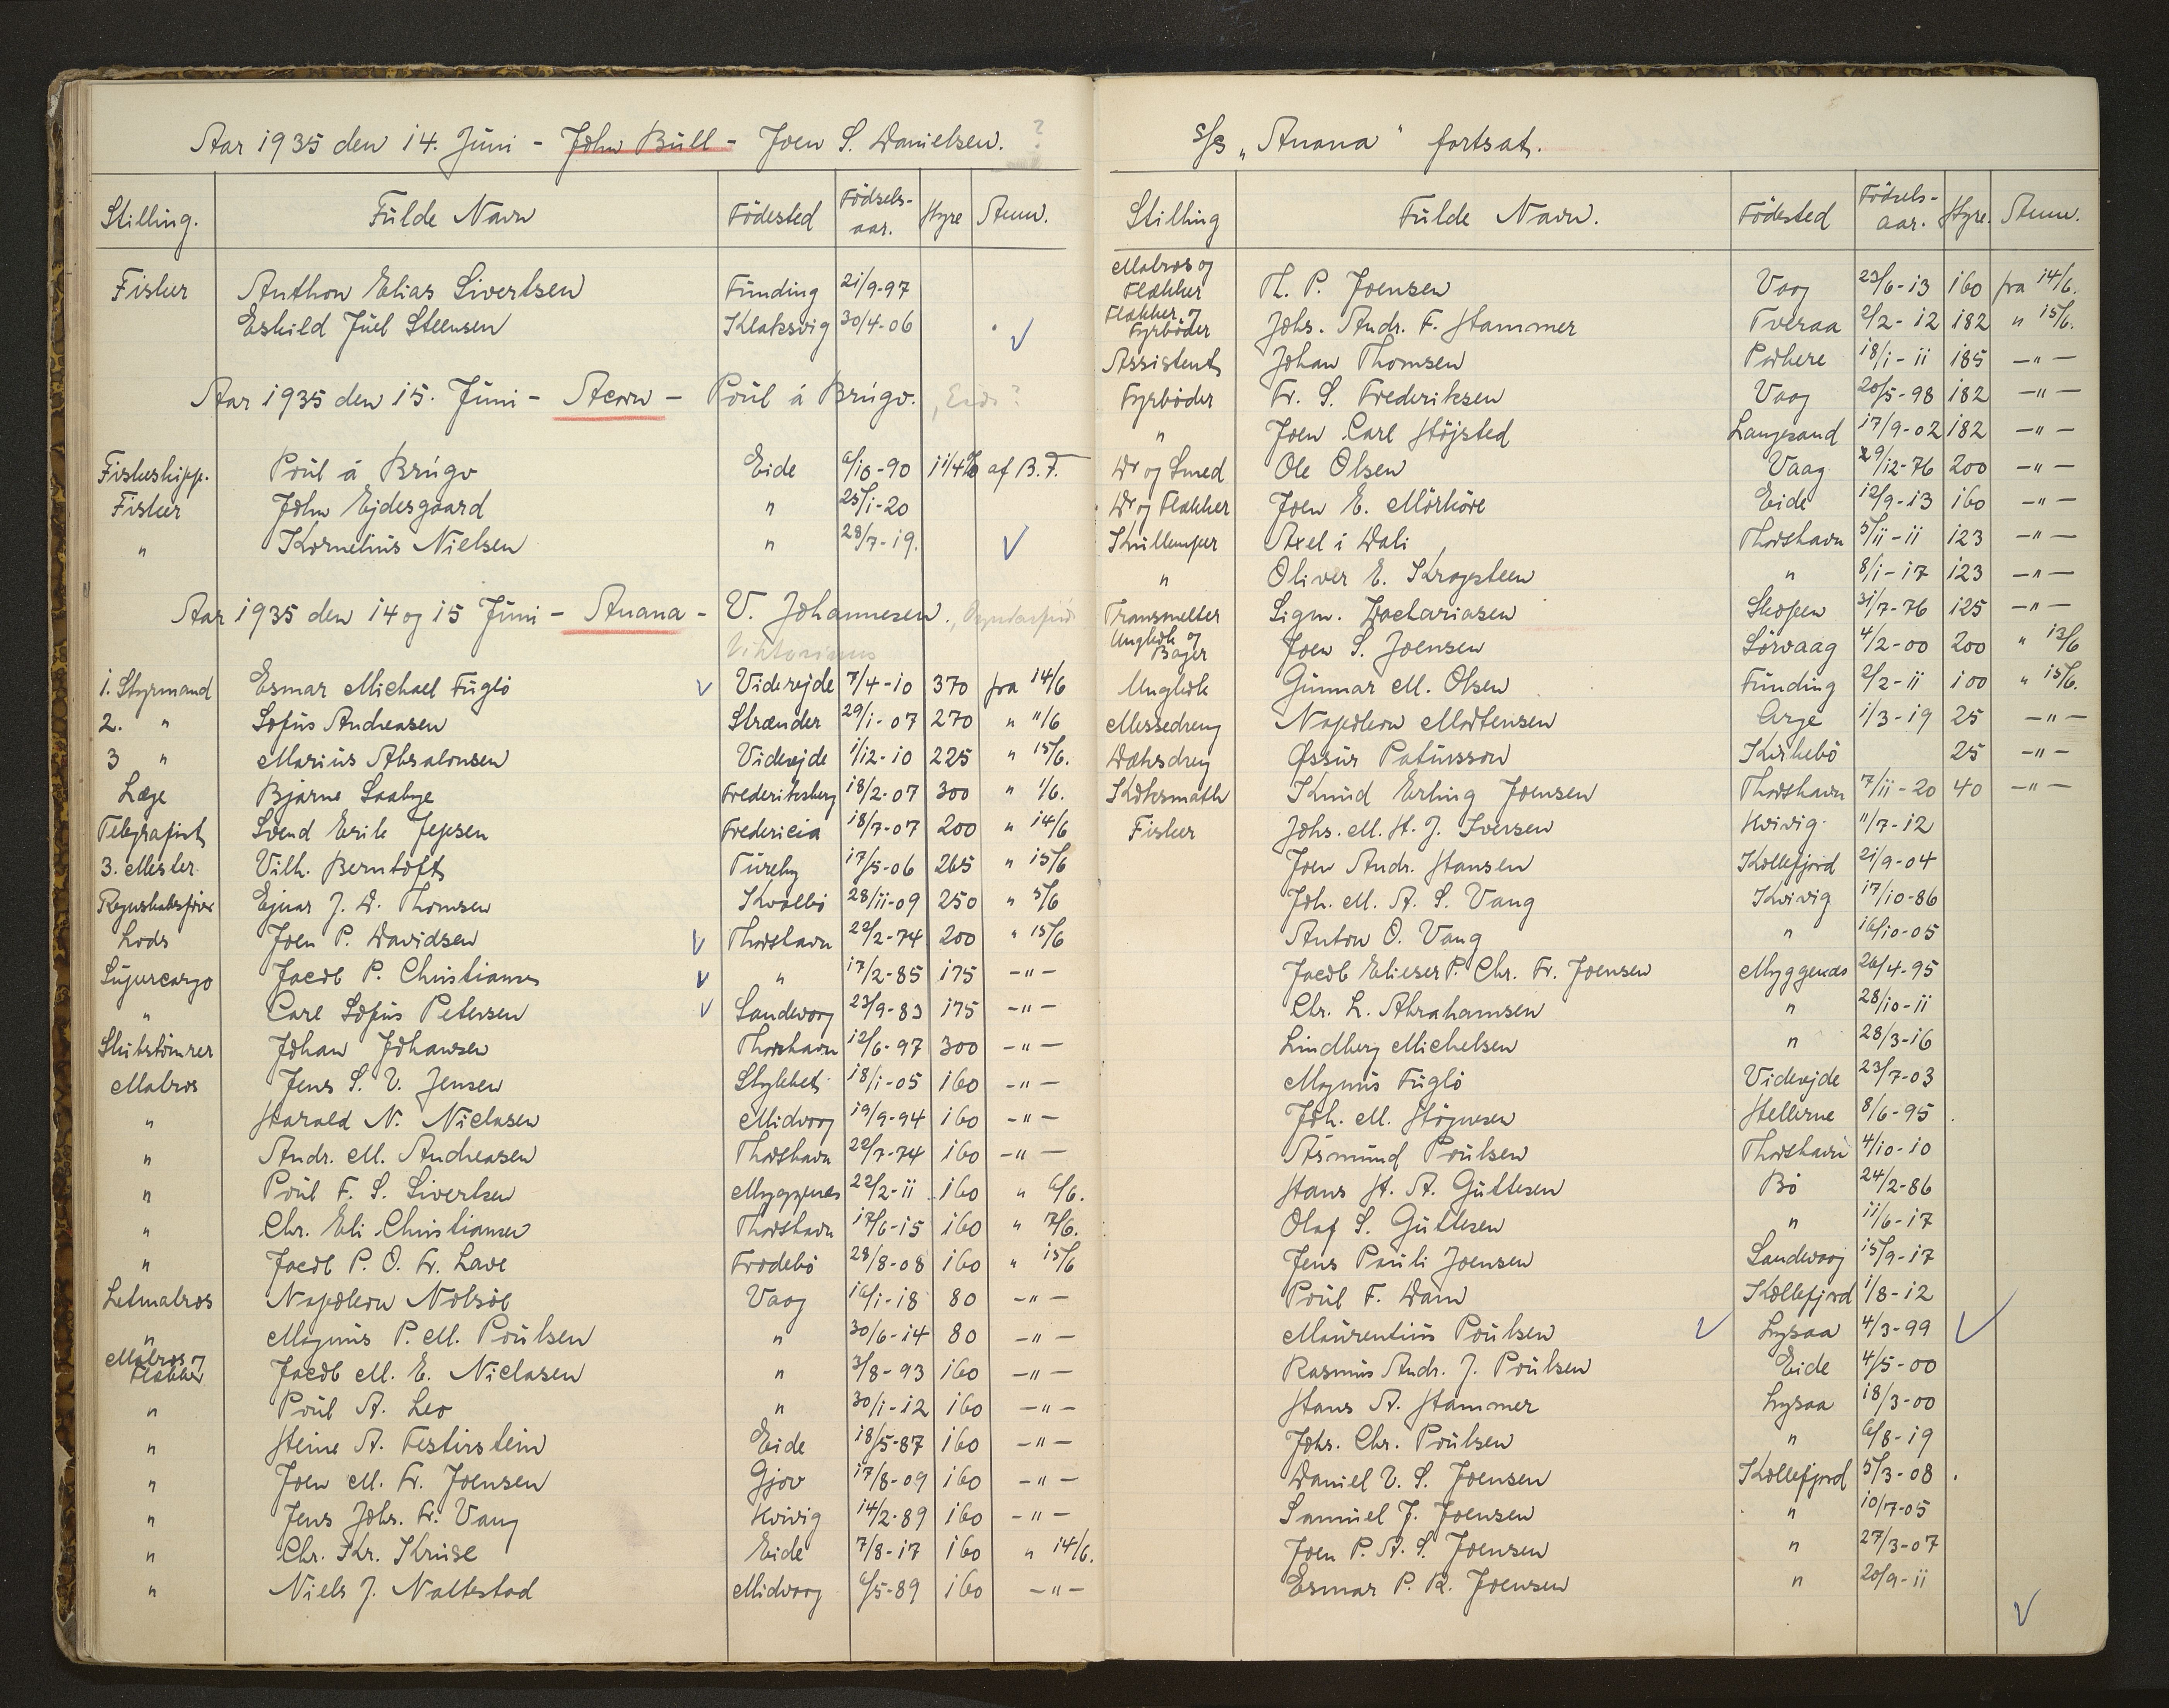 Aar 1935 den 14. Júni - John Búll - Joen S. Danielsen. ?
Stilling. Fúlde Navn Födested Födsels-aar. Hyre Anm.
Fisker Anthon Elias Sivertsen Fúnding 21/9-97
Eskild Júel Steensen Klaksvig 30/4-06
Aar 1935 den 15. Júni - Acorn - Poúl á Brúgv. „Eide?
Fiskeskipp. Poúl á Brúgv Eide 6/10-90 11/4% af B.F.
Fisker John Ejdesgaard " 25/1-20
" Kornelius Nielsen " 28/7-19.
Aar 1935 den 14 og 15 Júni - Anana - V. Johannesen.
Viktorinus
1. Styrmand Esmar Michael Fúglö Viderejde 7/4-10 370 fra 14/6
2. " Sofús Andreasen Strænder 29/1-07 270 " 11/6
3 " Mariús Absalonsen Viderejde 1/12-10 225 " 15/6.
Læge Bjarne Saabye Frederiksberg 18/2-07 300 " 1/6.
Telegrafist Svend Erik Jepsen Fredericia 18/7-07 200 " 14/6
3. Mester Vilh. Berntoft Túreby 17/5-06 265 " 15/6
Regnskabsfører Ejnar J. D. Thomsen Kvalbö 28/11-09 250 " 5/6
Lods Joen P. Davidsen Thorshavn 22/2-74 200 " 15/6
Súpercargo Jacob P. Christiansen " 17/2-85 175 -"-
" Carl Sofús Petersen Sandevaag 23/9-83 175 -"-
Skibstömrer Johan Johansen Thorshavn 12/6-97 300 -"-
Matros Jens S. V. Jensen 18/1-05 160 -"-
" Harald N. Niclasen Midvaag 19/9-94 160 -"-
" Andr. M. Andreasen Thorshavn 22/7-74 160 -"-
" Poúl F. S. Sivertsen Myggenes 22/2-11 160 " 6/6.
" Chr. Eli Christiansen Thorshavn 17/6-15 160 " 7/6.
" Jacob P. O. Fr. Lave Frodebö 28/8-08 160 " 15/6
Letmatros Napoleon Nolsöe Vaag 16/1-18 80 -"-
" Magnús P. M. Poúlsen " 30/6-14 80 -"-
Matros og Flækker Jacob M. E. Niclasen " 3/8-93 160 -"-
" Poúl A. Leo " 30/1-12 160 -"-
" Heine A. Festirstein Eide 18/5-87 160 -"-
" Joen M. Fr. Joensen Gjov 17/8-09 160 -"-
" Jens Johs. Fr. Vang Kvivig 14/2-89 160 -"-
" Chr. Kr. Krúse Eide 7/8-17 160 " 14/6.
" Niels J. Nattestad Midvaag 6/5-89 160 -"-
s/s „Anana" fortsat.
Stilling Fúlde Navn. Födested Födsels-aar. Hyre. Anm.
Matros og Flækker Th. P. Joensen Vaag 23/6-13 160 fra 14/6.
Flækker og Fyrböder Johs. Andr. F. Hammer Tveraa 2/2-12 182 " 15/6.
Assistent Johan Thomsen Porkere 18/1-11 185 -"-
Fyrböder Fr. S. Frederiksen Vaag 20/5-98 182 -"-
" Joen Carl Höjsted Langesand 17/9-02 182 -"-
Dr og Smed Ole Olsen Vaag 29/12-76 200 -"-
Dr og Flækker Joen E. Mörköre Eide 12/9-13 160 -"-
Kúllemper Axel i Dali Thorshavn 5/11-11 123 -"-
" Oliver E. Krogsteen " 8/1-17 123 -"-
Transmelter Sigm. Zachariasen Skopen 31/7-76 125 -"-
Ungkok og Bager Joen S. Joensen Sörvaag 4/2-00 200 " 13/6
Ungkok Gúnnar M. Olsen Fúnding 2/2-11 100 " 15/6.
Messedreng Napoleon Mortensen Arge 1/3-19 25 -"-
Dæksdreng Øssúr Patúrsson Kirkebö 25 -"-
Koksmath Knúd Erling Joensen Thorshavn 7/11-20 40 -"-
Fisker Johs. M. H. J. Iversen Kvivig 11/7-12
Joen Andr. Hansen Kollefjord 21/9-04
Joh. M. A. S. Vang Kvivig 17/10-86
Anton O. Vang " 16/10-05
Jacob Elieser P. Chr. Fr. Joensen Myggenæs 26/4-95
Chr. L. Abrahamsen " 28/10-11
Lindberg Michelsen " 28/3-16
Magnús Fúglö Viderejde 23/7-03
Joh. M. Högnesen Hellerne 8/6-95
Asmúnd Poúlsen Thorshavn 4/10-10
Hans H. A. Gúttesen Bö 24/2-86
Olaf S. Gúttesen " 11/6-17
Jens Paúli Joensen Sandevaag 15/9-17
Poúl F. Dam Kollefjord 1/8-12
Maúrentiús Poúlsen Lysaa 4/3-99
Rasmús Andr. J. Poúlsen Eide 4/5-00
Hans A. Hammer Lysaa 18/3-00
Johs. Chr. Poúlsen " 6/8-19
Daniel V. S. Joensen Kollefjord 5/3-08
Samúel J. Joensen " 10/7-05
Joen P. A. S. Joensen " 27/3-07
Esmar P. R. Joensen " 20/9-11